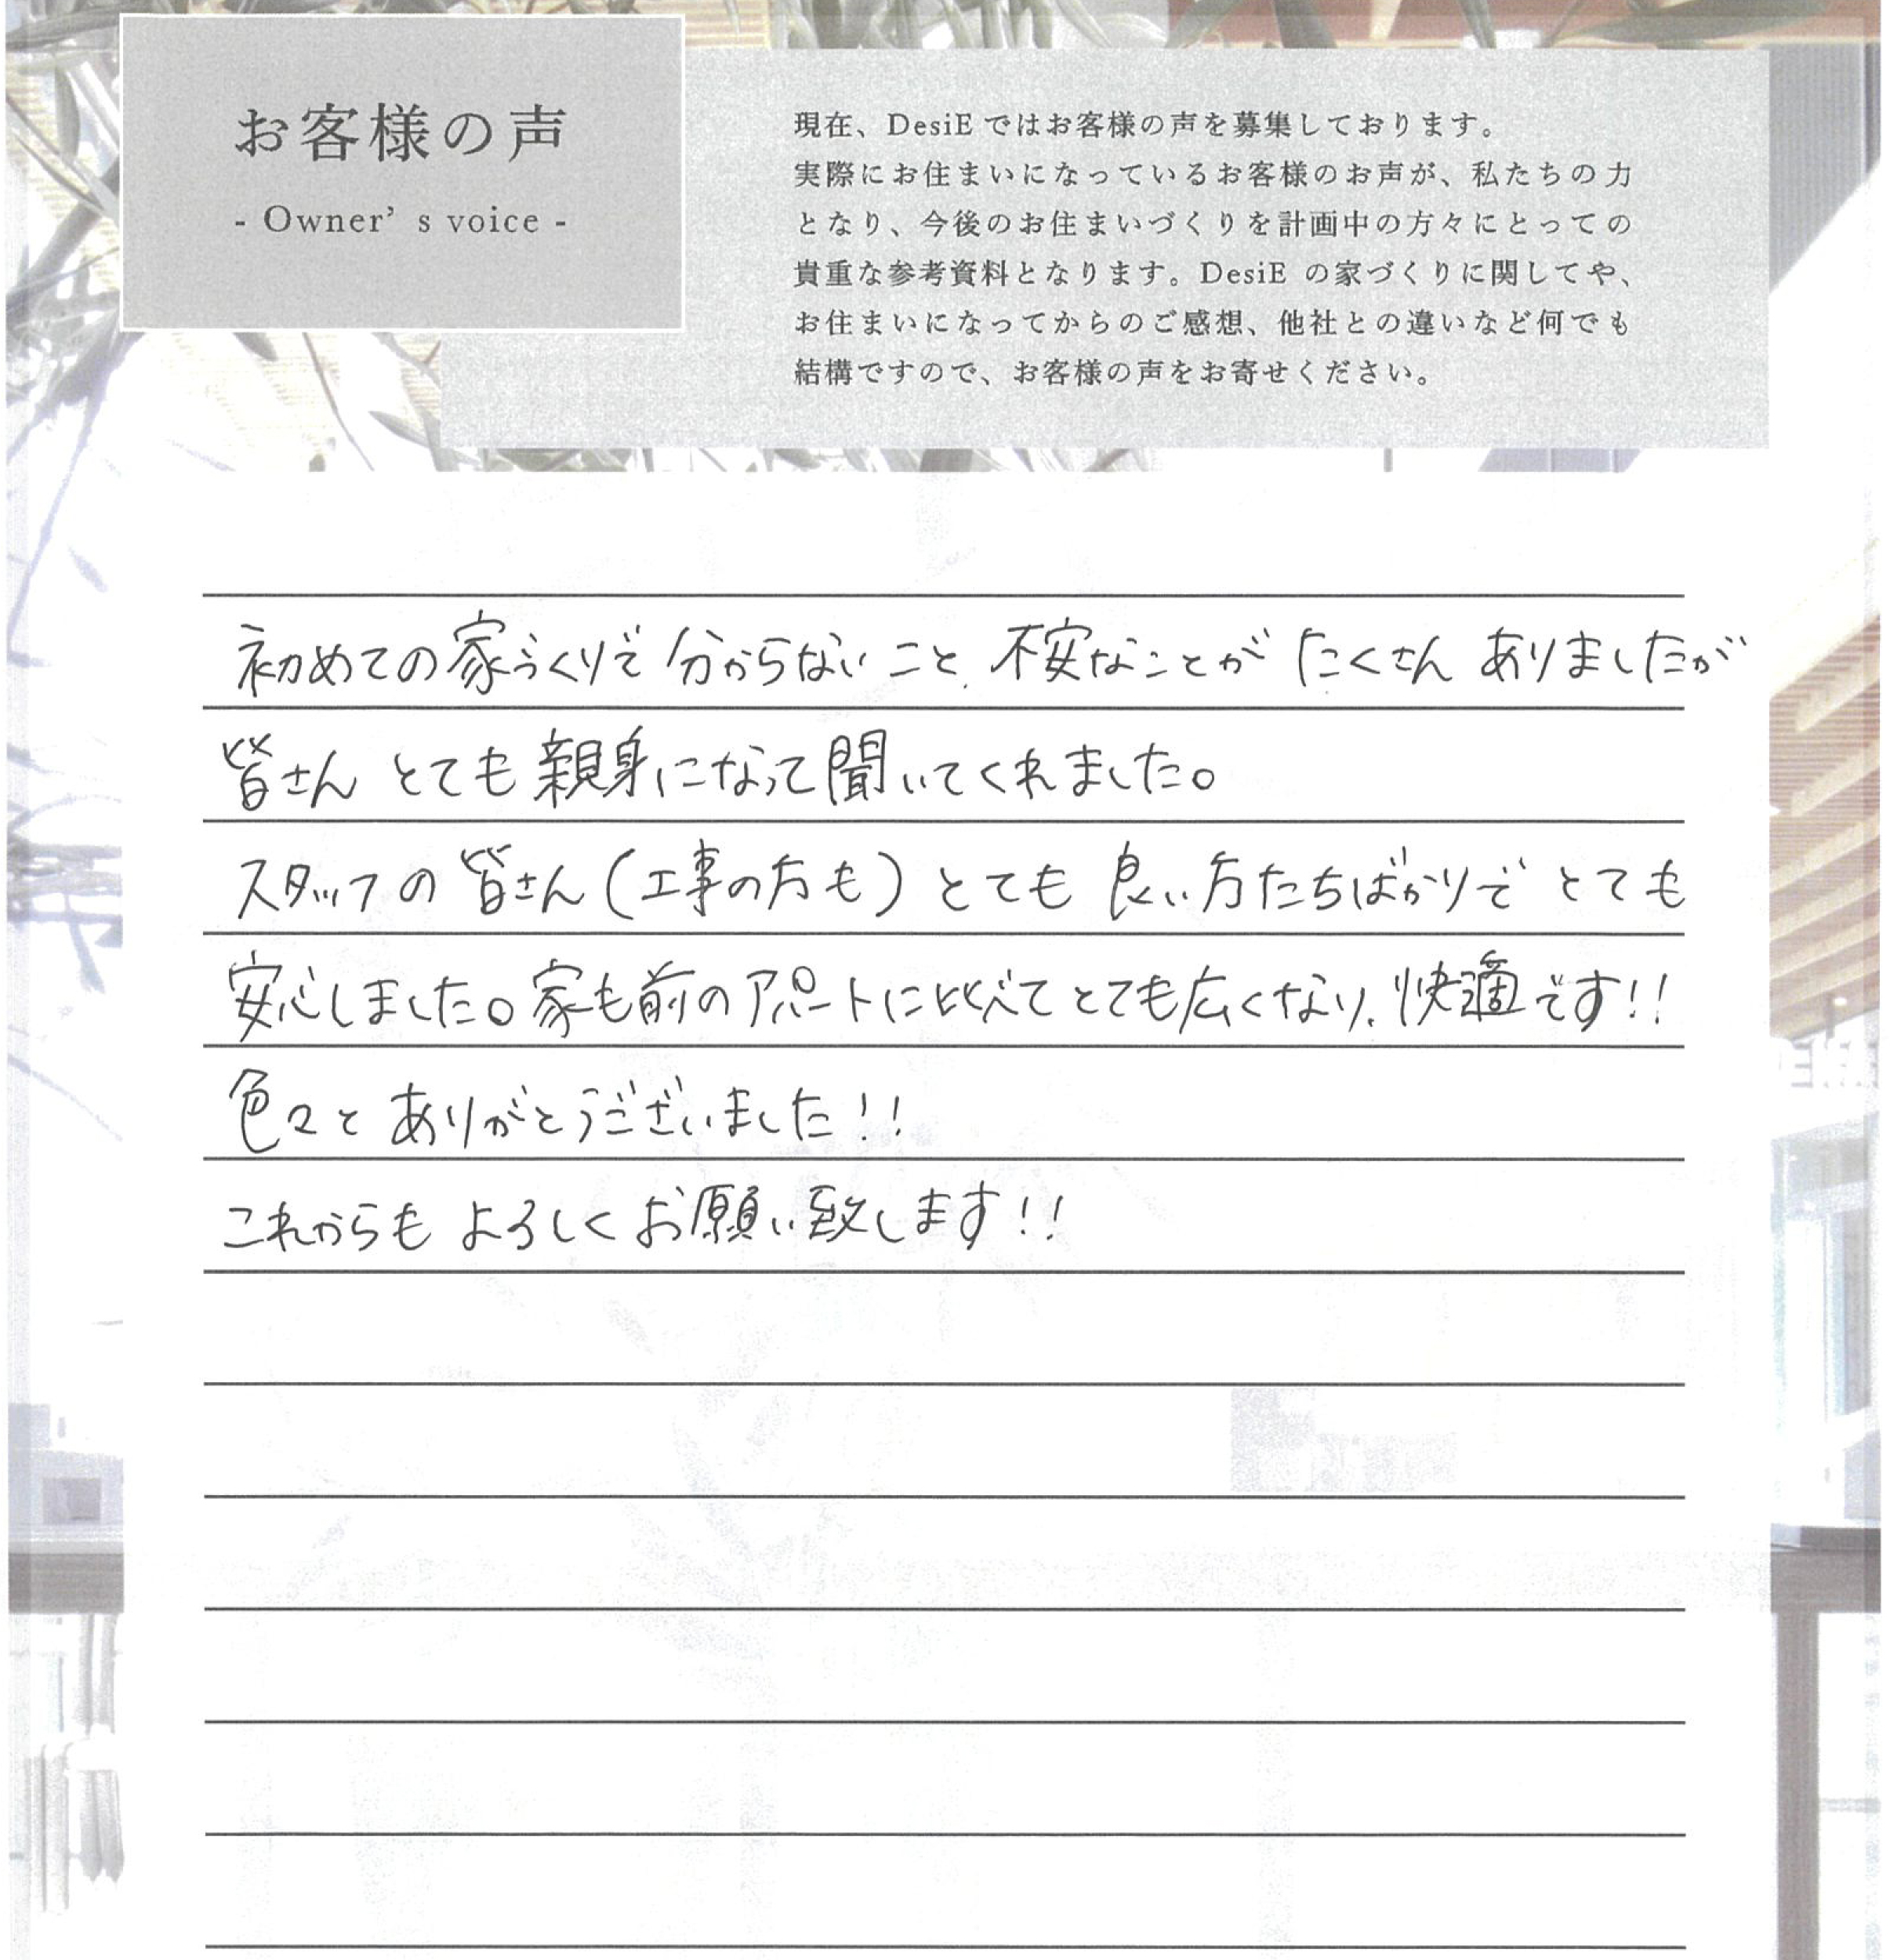 お客様の声
- Owner’s voice -
現在、DesiE ではお客様の声を募集しております。
実際にお住まいになっているお客様のお声が、私たちの力
となり、今後のお住まいづくりを計画中の方々にとっての
貴重な参考資料となります。DesiE の家づくりに関してや、
お住まいになってからのご感想、他社との違いなど何でも
結構ですので、お客様の声をお寄せください。
初めての家づくりで分からないこと、不安なことがたくさんありましたが
皆さんとても親身になって聞いてくれました。
スタッフの皆さん(工事の方も)とても良い方たちばかりでとても
安心しました。家も前のアパートに比べてとても広くなり、快適です!!
色々とありがとうございました!!
これからもよろしくお願い致します!!